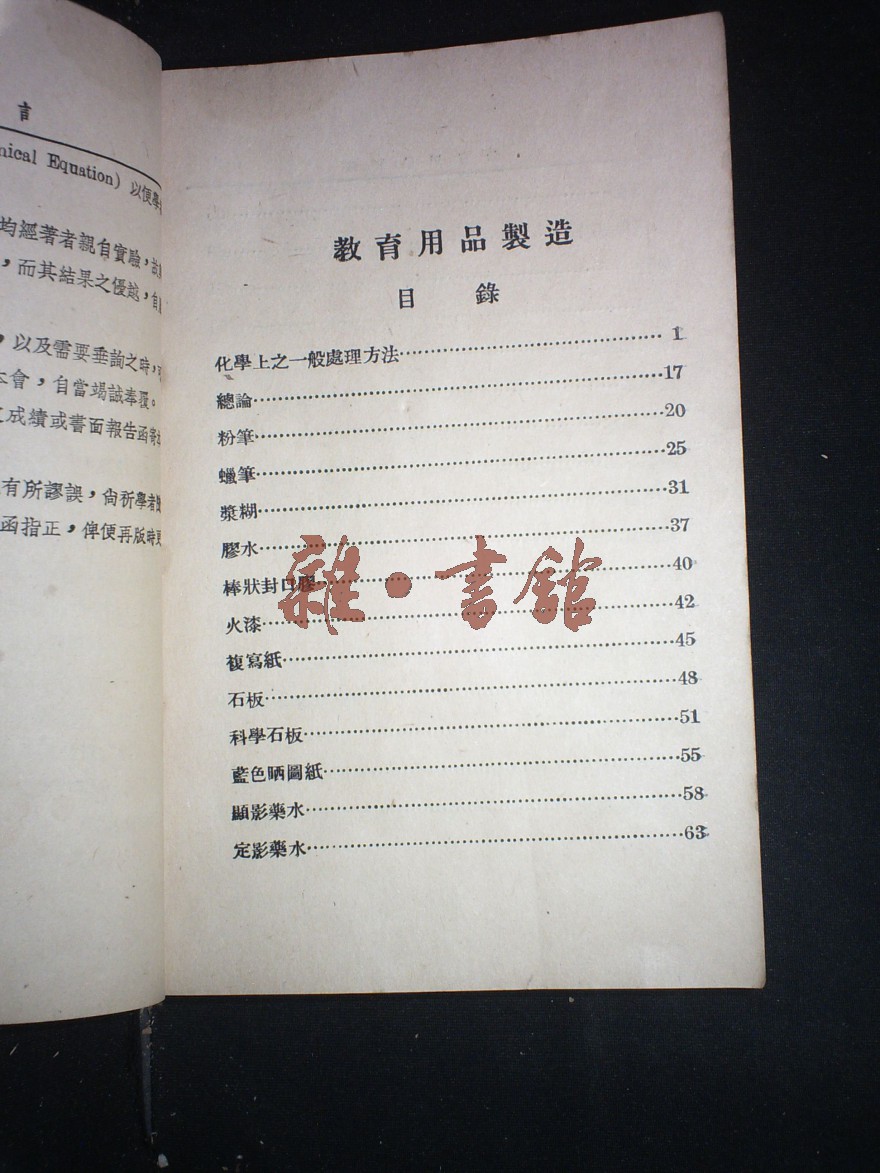 言
nical Equation) 以便學
均經著者親自實驗，故
，而其結果之優越，自
，以及需要垂詢之時，
本會，自當竭誠奉覆。
成績或書面報告函寄
有所謬誤，尙祈學者
函指正，俾便再版時更
教育用品製造
目 錄
化學上之一般處理方法 1
總論 17
粉筆 20
蠟筆 25
漿糊 31
膠水 37
棒狀封口膠 40
火漆 42
複寫紙 45
石板 48
科學石板 51
藍色晒圖紙 55
顯影藥水 58
定影藥水 63
雜·書館